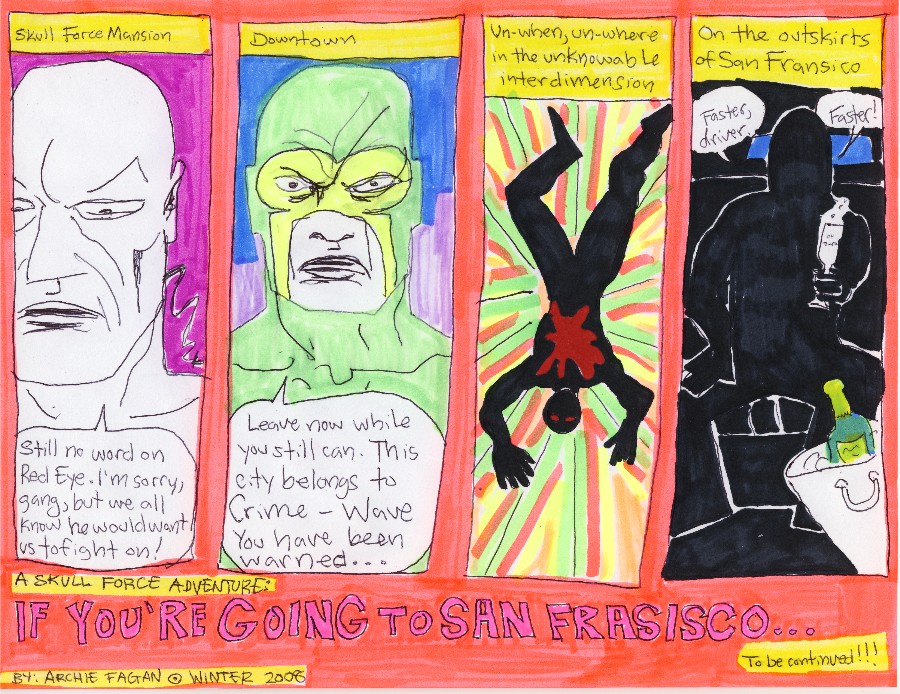 Skull Force Mansion
Still no word on
Red Eye. I'm sorry,
gang, but we all
know he would want
us to fight on!
Downtown
Leave now while
you still can. This
city belongs to
Crime-Wave
You have been
warned...
Un-when, un-where
in the unknowable
interdimension
On the outskirts
of San Fransico
Faster,
driver.
Faster!
A SKULL FORCE ADVENTURE:
IF YOU'RE GOING TO SAN FRASISCO...
To be continued!!!
BY: ARCHIE FAGAN © WINTER 2008